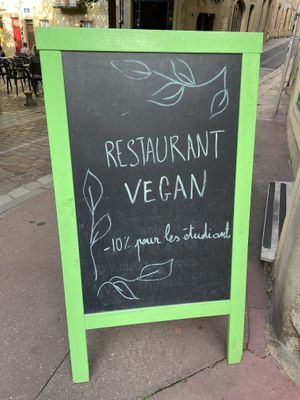 RESTAURANT
VEGAN
-10% pour les étudiant